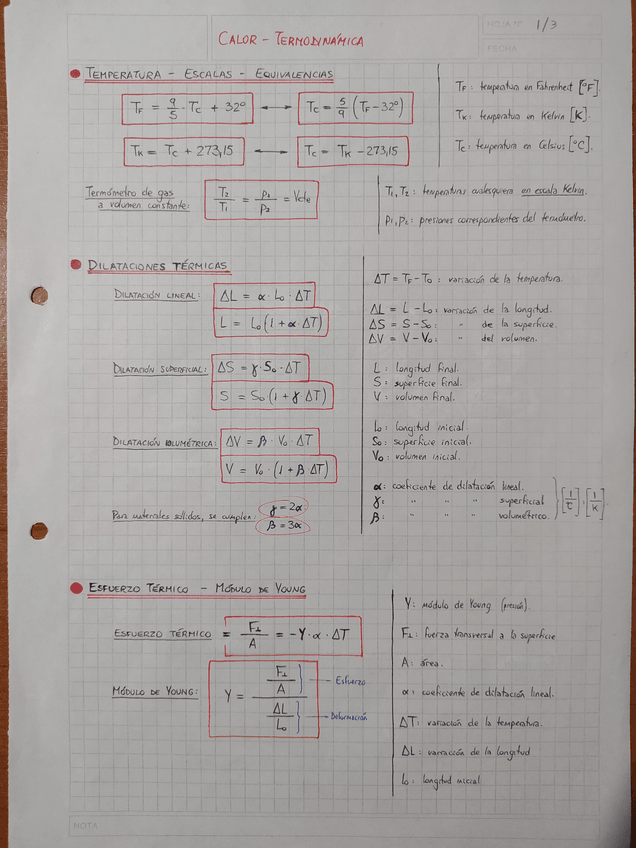 HOJA Nº 1/3
FECHA
CALOR - TERMODINÁMICA
TEMPERATURA - ESCALAS - EQUIVALENCIAS
T_F = 9/5 · T_C + 32° ↔ T_C = 5/9 (T_F - 32°)
T_K = T_C + 273,15 ↔ T_C = T_K - 273,15
T_F: temperatura en Fahrenheit [°F].
T_K: temperatura en Kelvin [K].
T_C: temperatura en Celsius [°C].
Termómetro de gas
a volumen constante:
T_2/T_1 = p_1/p_2 = V_cte
T_1, T_2: temperaturas cualesquiera en escala Kelvin.
p_1, p_2: presiones correspondientes del termómetro.
DILATACIONES TÉRMICAS
DILATACIÓN LINEAL: ΔL = α · L_0 · ΔT
L = L_0 (1 + α ΔT)
DILATACIÓN SUPERFICIAL: ΔS = γ · S_0 · ΔT
S = S_0 (1 + γ ΔT)
DILATACIÓN VOLUMÉTRICA: ΔV = β · V_0 · ΔT
V = V_0 · (1 + β ΔT)
Para materiales sólidos, se cumplen: γ = 2α
β = 3α
ΔT = T_F - T_0: variación de la temperatura.
ΔL = L - L_0: variación de la longitud.
ΔS = S - S_0: " de la superficie.
ΔV = V - V_0: " del volumen.
L: longitud final.
S: superficie final.
V: volumen final.
L_0: longitud inicial.
S_0: superficie inicial.
V_0: volumen inicial.
α: coeficiente de dilatación lineal.
γ: " " " superficial
β: " " " volumétrico.
[1/°C] ; [1/K].
ESFUERZO TÉRMICO - MÓDULO DE YOUNG
ESFUERZO TÉRMICO = F⊥/A = -Y · α · ΔT
MÓDULO DE YOUNG: Y = (F⊥/A)/(ΔL/L_0)
Esfuerzo
Deformación
Y: módulo de Young (presión).
F⊥: fuerza transversal a la superficie
A: área.
α: coeficiente de dilatación lineal.
ΔT: variación de la temperatura.
ΔL: variación de la longitud
L_0: longitud inicial
NOTA